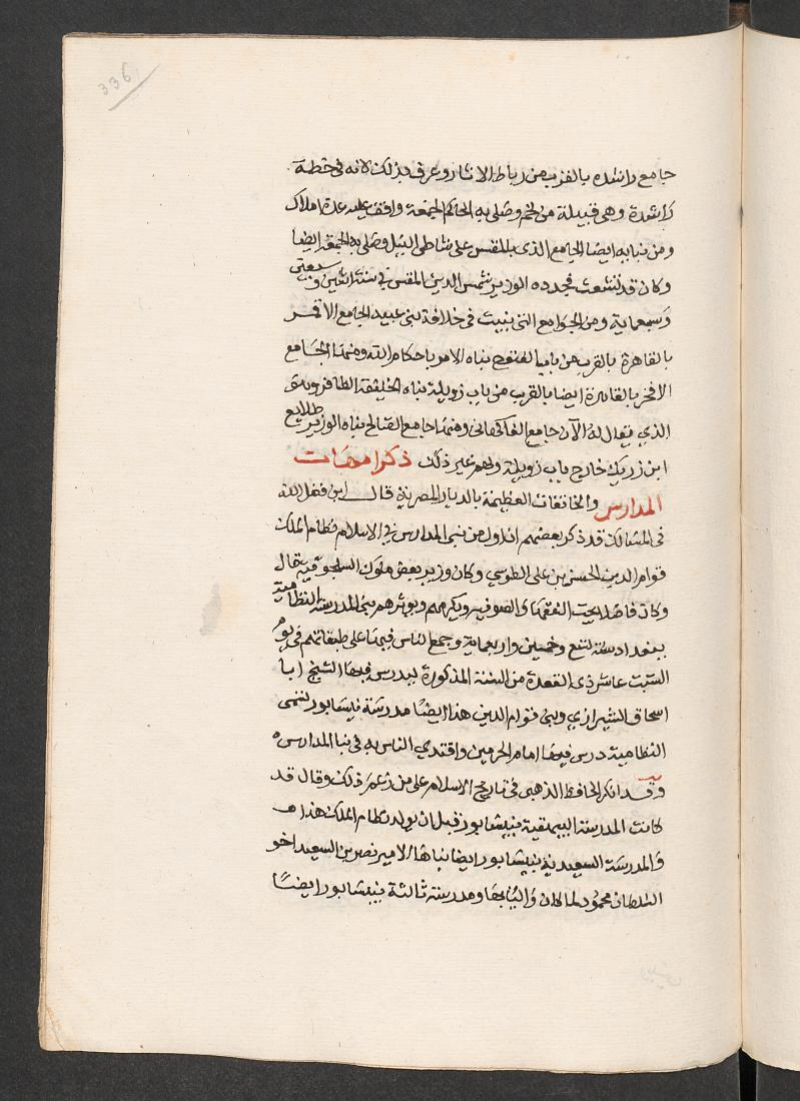 336
جامع راشده بالقرب من رباط الاثار وعرف بذلك لانه في خطة
راشدة وهي قبيلة من لخم وصلى به الحاكم الجمعة واوقف عليه عدة املاك
ومن بنايه ايضا الجامع الذي بالمقس على شاطى النيل وصلى به الجمعة ايضا
وكان قد تشعث فجدده الوزير شمس الدين المقسي في سنة اثنين وسبعين
وسبعماية ومن الجوامع التى بنيت فى خلافة بني عبيد الجامع الاقمر
بالقاهرة بالقرب من باب الفتوح بناه الامر باحكام الله ومنها الجامع
الافخر بالقاهرة ايضا بالقرب من باب زويلة بناه الخليفة الظافر وهو
الذي يقال له الآن جامع الفاكهانى ومنها جامع الصالح بناه الوزير طلايع
ابن زريك خارج باب زويلة وهم غير ذلك ذكر امهات
المدارس والخانقات العظيمة بالديار المصرية قال ابن فضل الله
في المسالك قد ذكر بعضهم ان اول من بنى المدارس في الاسلام نظام الملك
قوام الدين الحسن بن على الطوسي وكان وزير بعض ملوك السلجوقية قال
وكان فاضلا يحب الفقهاء والصوفية ويكرمهم ويوثرهم بنى المدرسة النظامية
ببغداد سنة تسع وخمسين واربعماية وجمع الناس فيها على طبقاتهم في يوم
السبت عاشر ذى القعدة من السنة المذكورة ليدرس فيها الشيخ ابا
اسحاق الشيرازي وبنى قوام الدين هذا ايضا مدرسة نيسابور تسمى
النظامية درس فيها امام الحرمين واقتدي الناس به في بنا المدارس
وقد انكر الحافظ الذهبى فى تاريخ الاسلام على من زعم ذلك وقال قد
كانت المدرسة البيهقية بنيشابور قبل ان يولد نظام الملك هذا
والمدرسة السعيدية بنيشابور ايضا بناها الامير نصر بن السعيد اخو
السلطان محمود لما كان واليا بها ومدرسة ثالثة بنيشابور ايضا